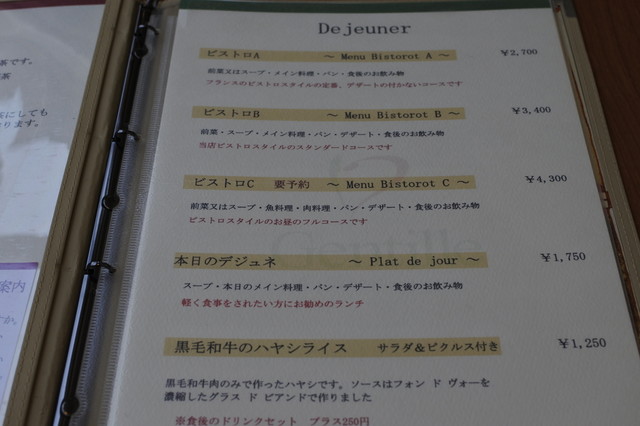 茶です。
茶
茶にしても
ります。
案内
Dejeuner
ビストロA ～ Menu Bistorot A ～ ￥2,700
前菜又はスープ・メイン料理・パン・食後のお飲み物
フランスのビストロスタイルの定番、デザートの付かないコースです
ビストロB ～ Menu Bistorot B ～ ￥3,400
前菜・スープ・メイン料理・パン・デザート・食後のお飲み物
当店ビストロスタイルのスタンダードコースです
ビストロC 要予約 ～ Menu Bistorot C ～ ￥4,300
前菜又はスープ・魚料理・肉料理・パン・デザート・食後のお飲み物
ビストロスタイルのお昼のフルコースです
本日のデジュネ ～ Plat de jour ～ ￥1,750
スープ・本日のメイン料理・パン・デザート・食後のお飲み物
軽く食事をされたい方にお勧めのランチ
黒毛和牛のハヤシライス サラダ＆ピクルス付き ￥1,250
黒毛和牛肉のみで作ったハヤシです。ソースはフォン ド ヴォーを
濃縮したグラス ド ビアンドで作りました
※食後のドリンクセット プラス250円